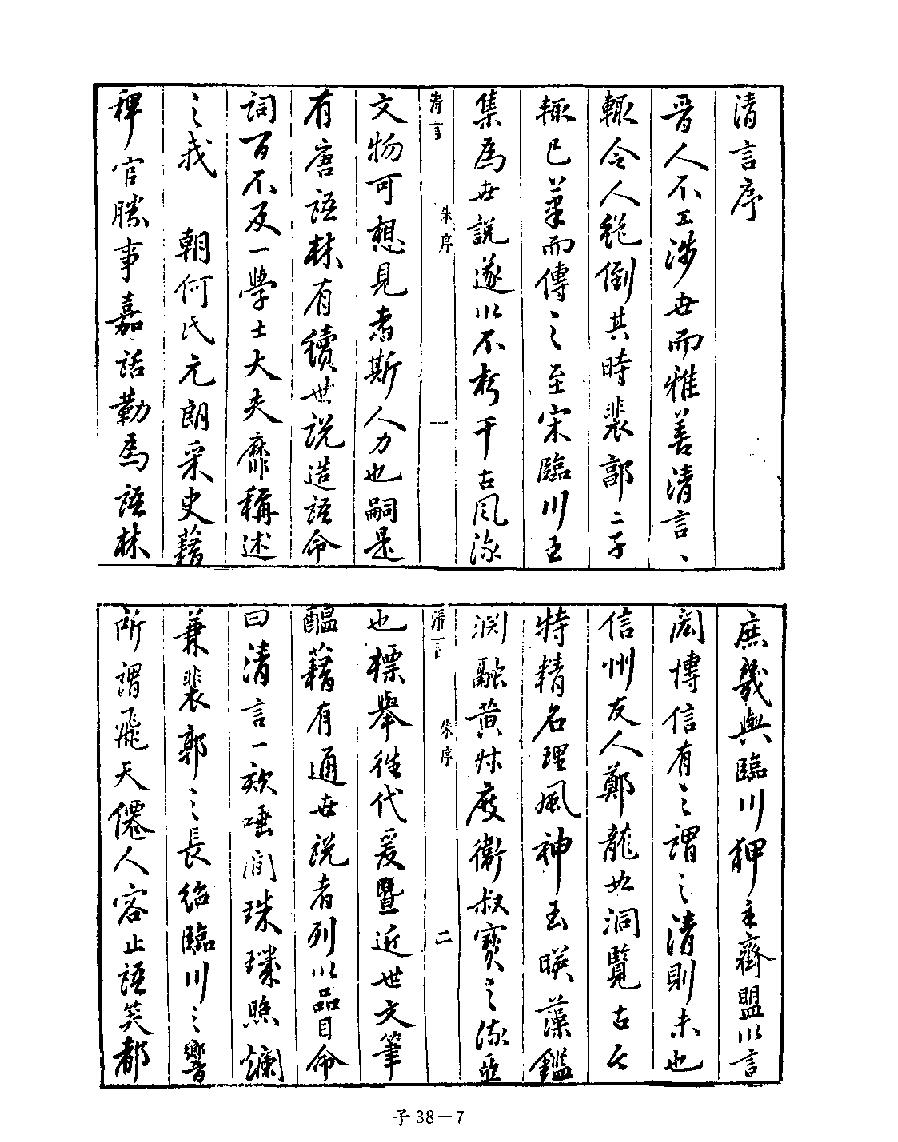 清言序
晋人不工涉世而雅善清言〻
輒令人絕倒其時裴郭二子
輒已筆而傳之至宋臨川王
集爲世說遂以不朽千古風流
清言 朱序 一
文物可想見者斯人力也嗣是
有唐語林有續世說造語命
詞百不及一學士大夫靡稱述
之我 朝何氏元朗采史籍
稗官勝事嘉話勒爲語林
庶幾與臨川狎主齊盟以言
閎博信有之謂之清則未也
信州友人鄭龍如洞覽古今
特精名理風神玉暎藻鑑
淵融黃叔度衛叔寶之流亞
清言 朱序 二
也標舉往代爰暨近世文筆
醞藉有通世說者列以品目命
曰清言一欬唾間珠璣照爛
兼裴郭之長紹臨川之響
所謂飛天僊人容止語笑都
子38—7